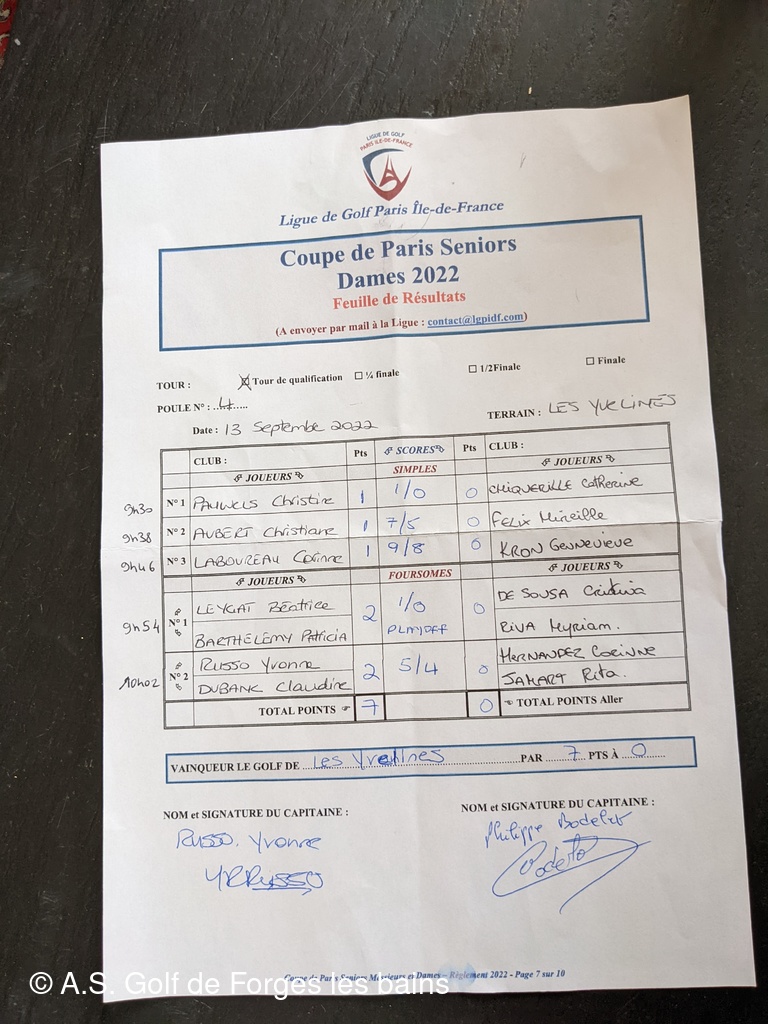 LIGUE DE GOLF
PARIS ILE-DE-FRANCE
Ligue de Golf Paris Île-de-France
Coupe de Paris Seniors
Dames 2022
Feuille de Résultats
(A envoyer par mail à la Ligue : contact@lgpidf.com)
TOUR : ☒ Tour de qualification ☐ ¼ finale ☐ 1/2Finale ☐ Finale
POULE N° : ..4.....
TERRAIN : LES YVELINES
Date : 13 Septembre 2022
CLUB : Pts SCORES Pts CLUB :
JOUEURS SIMPLES JOUEURS
9h30 N° 1 PAUWELS Christine 1 1/0 0 CHIQUERILLE Catherine
9h38 N° 2 AUBERT Christiane 1 7/5 0 FELIX Mireille
9h46 N° 3 LABOUREAU Corinne 1 9/8 0 KRON Genneviève
JOUEURS FOURSOMES JOUEURS
9h54 N° 1 LEYGAT Béatrice 2 1/0 0 DE SOUSA Cristina
BARTHELEMY Patricia PLAYOFF RIVA Myriam.
10h02 N° 2 RUSSO Yvonne 2 5/4 0 HERNANDEZ Corinne
DUBANK Claudine JAMART Rita.
TOTAL POINTS 7 0 TOTAL POINTS Aller
VAINQUEUR LE GOLF DE Les Yvelines PAR 7 PTS À 0
NOM et SIGNATURE DU CAPITAINE : NOM et SIGNATURE DU CAPITAINE :
RUSSO. Yvonne Philippe Bodelot
YRRUSSO
Coupe de Paris Seniors Messieurs et Dames – Règlement 2022 - Page 7 sur 10
© A.S. Golf de Forges les bains